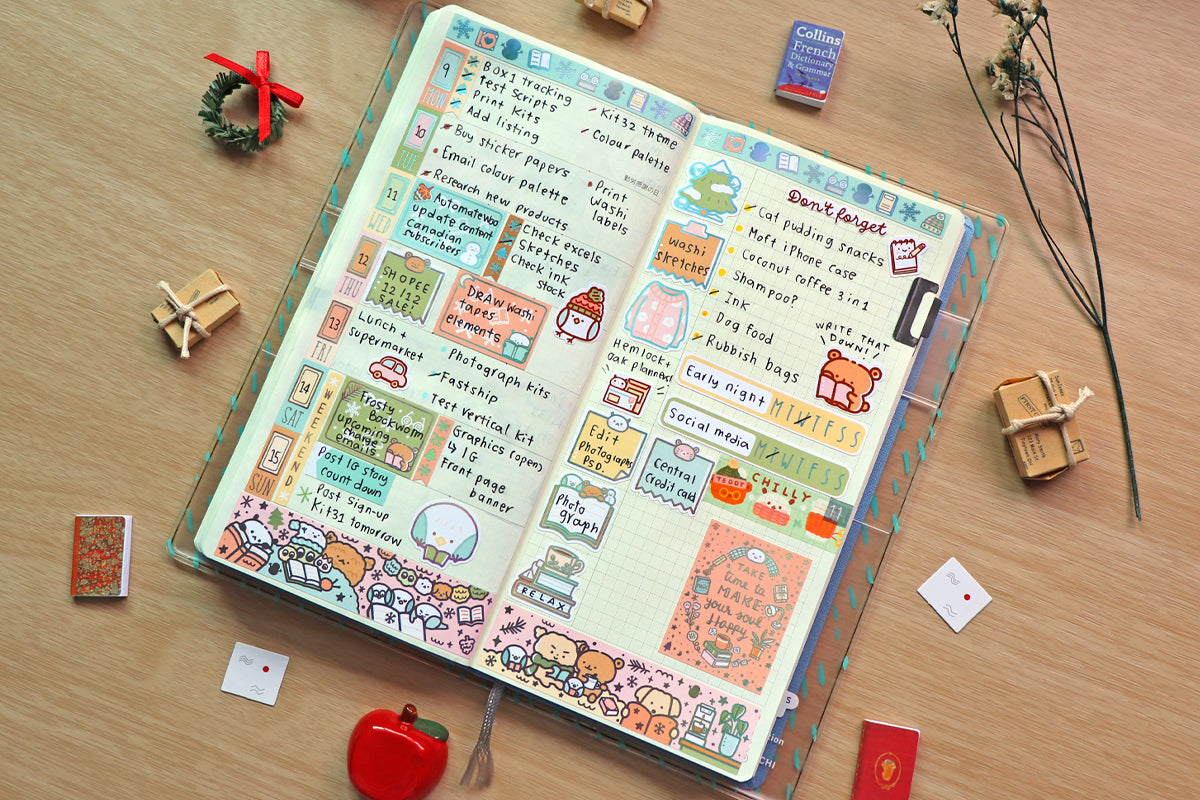 9
MON
BOX 1 tracking
test Scripts
Print Kits
Add listing
Kit32 theme
Colour palette
10
TUE
Buy sticker papers
Email colour palette
Research new products
勤労感謝の日
Print
Washi
labels
11
WED
Automatewoo
update content
Canadian
subscribers
Check excels
Sketches
Check ink
stock
12
THU
SHOPEE
12/12
SALE!
DRAW Washi
tapes
elements
13
FRI
Lunch +
supermarket
Photograph kits
Fastship
Test vertical kit
14
SAT
WEEKEND
Frosty
Bookworm
upcoming
charge
emails
Graphics (open)
4 IG
Front page
banner
15
SUN
Post IG story
count down
Post sign-up
Kit31 tomorrow
Don't forget
Cat pudding snacks
Moft iPhone case
Coconut coffee 3 in 1
Shampoo?
Ink
Dog food
Rubbish bags
washi
sketches
WRITE THAT
DOWN!
Hemlock+
oak planners
Early night
MTWTFSS
Social media
MTWTFSS
Edit
Photographs
PSD.
Central
Credit card
TEDDY
CHILLY
11
Photo
graph
RELAX
TAKE
time to
MAKE
your soul
Happy
Collins
French
Dictionary
& Grammar